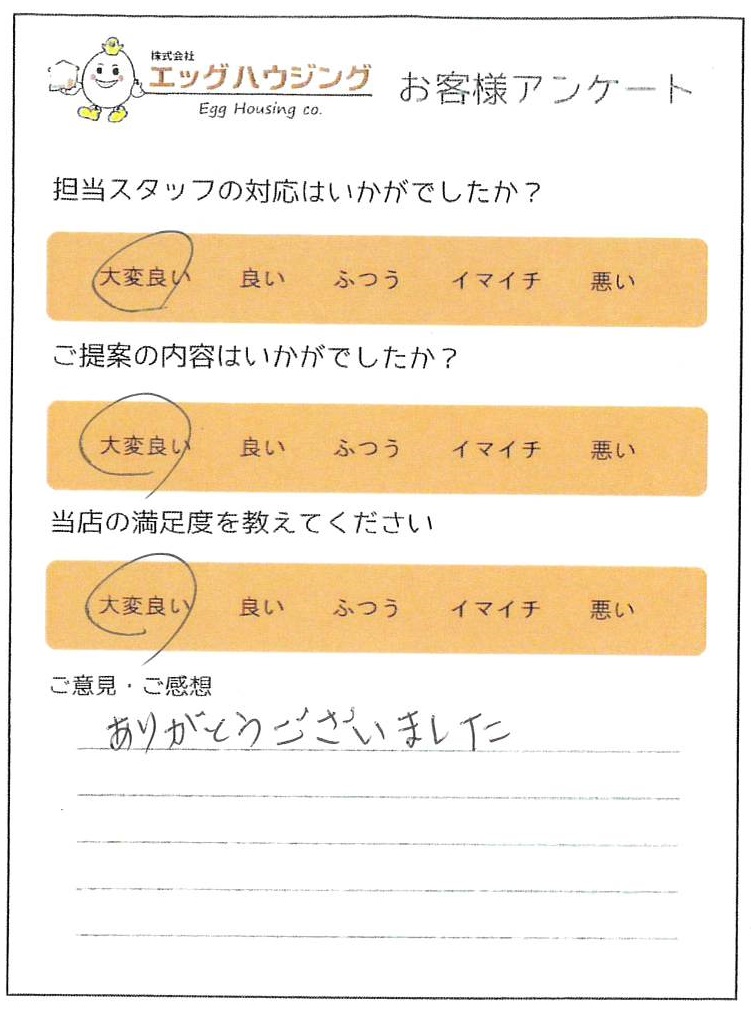 株式会社
エッグハウジング
Egg Housing co.
お客様アンケート
担当スタッフの対応はいかがでしたか？
大変良い 良い ふつう イマイチ 悪い
ご提案の内容はいかがでしたか？
大変良い 良い ふつう イマイチ 悪い
当店の満足度を教えてください
大変良い 良い ふつう イマイチ 悪い
ご意見・ご感想
ありがとうございました